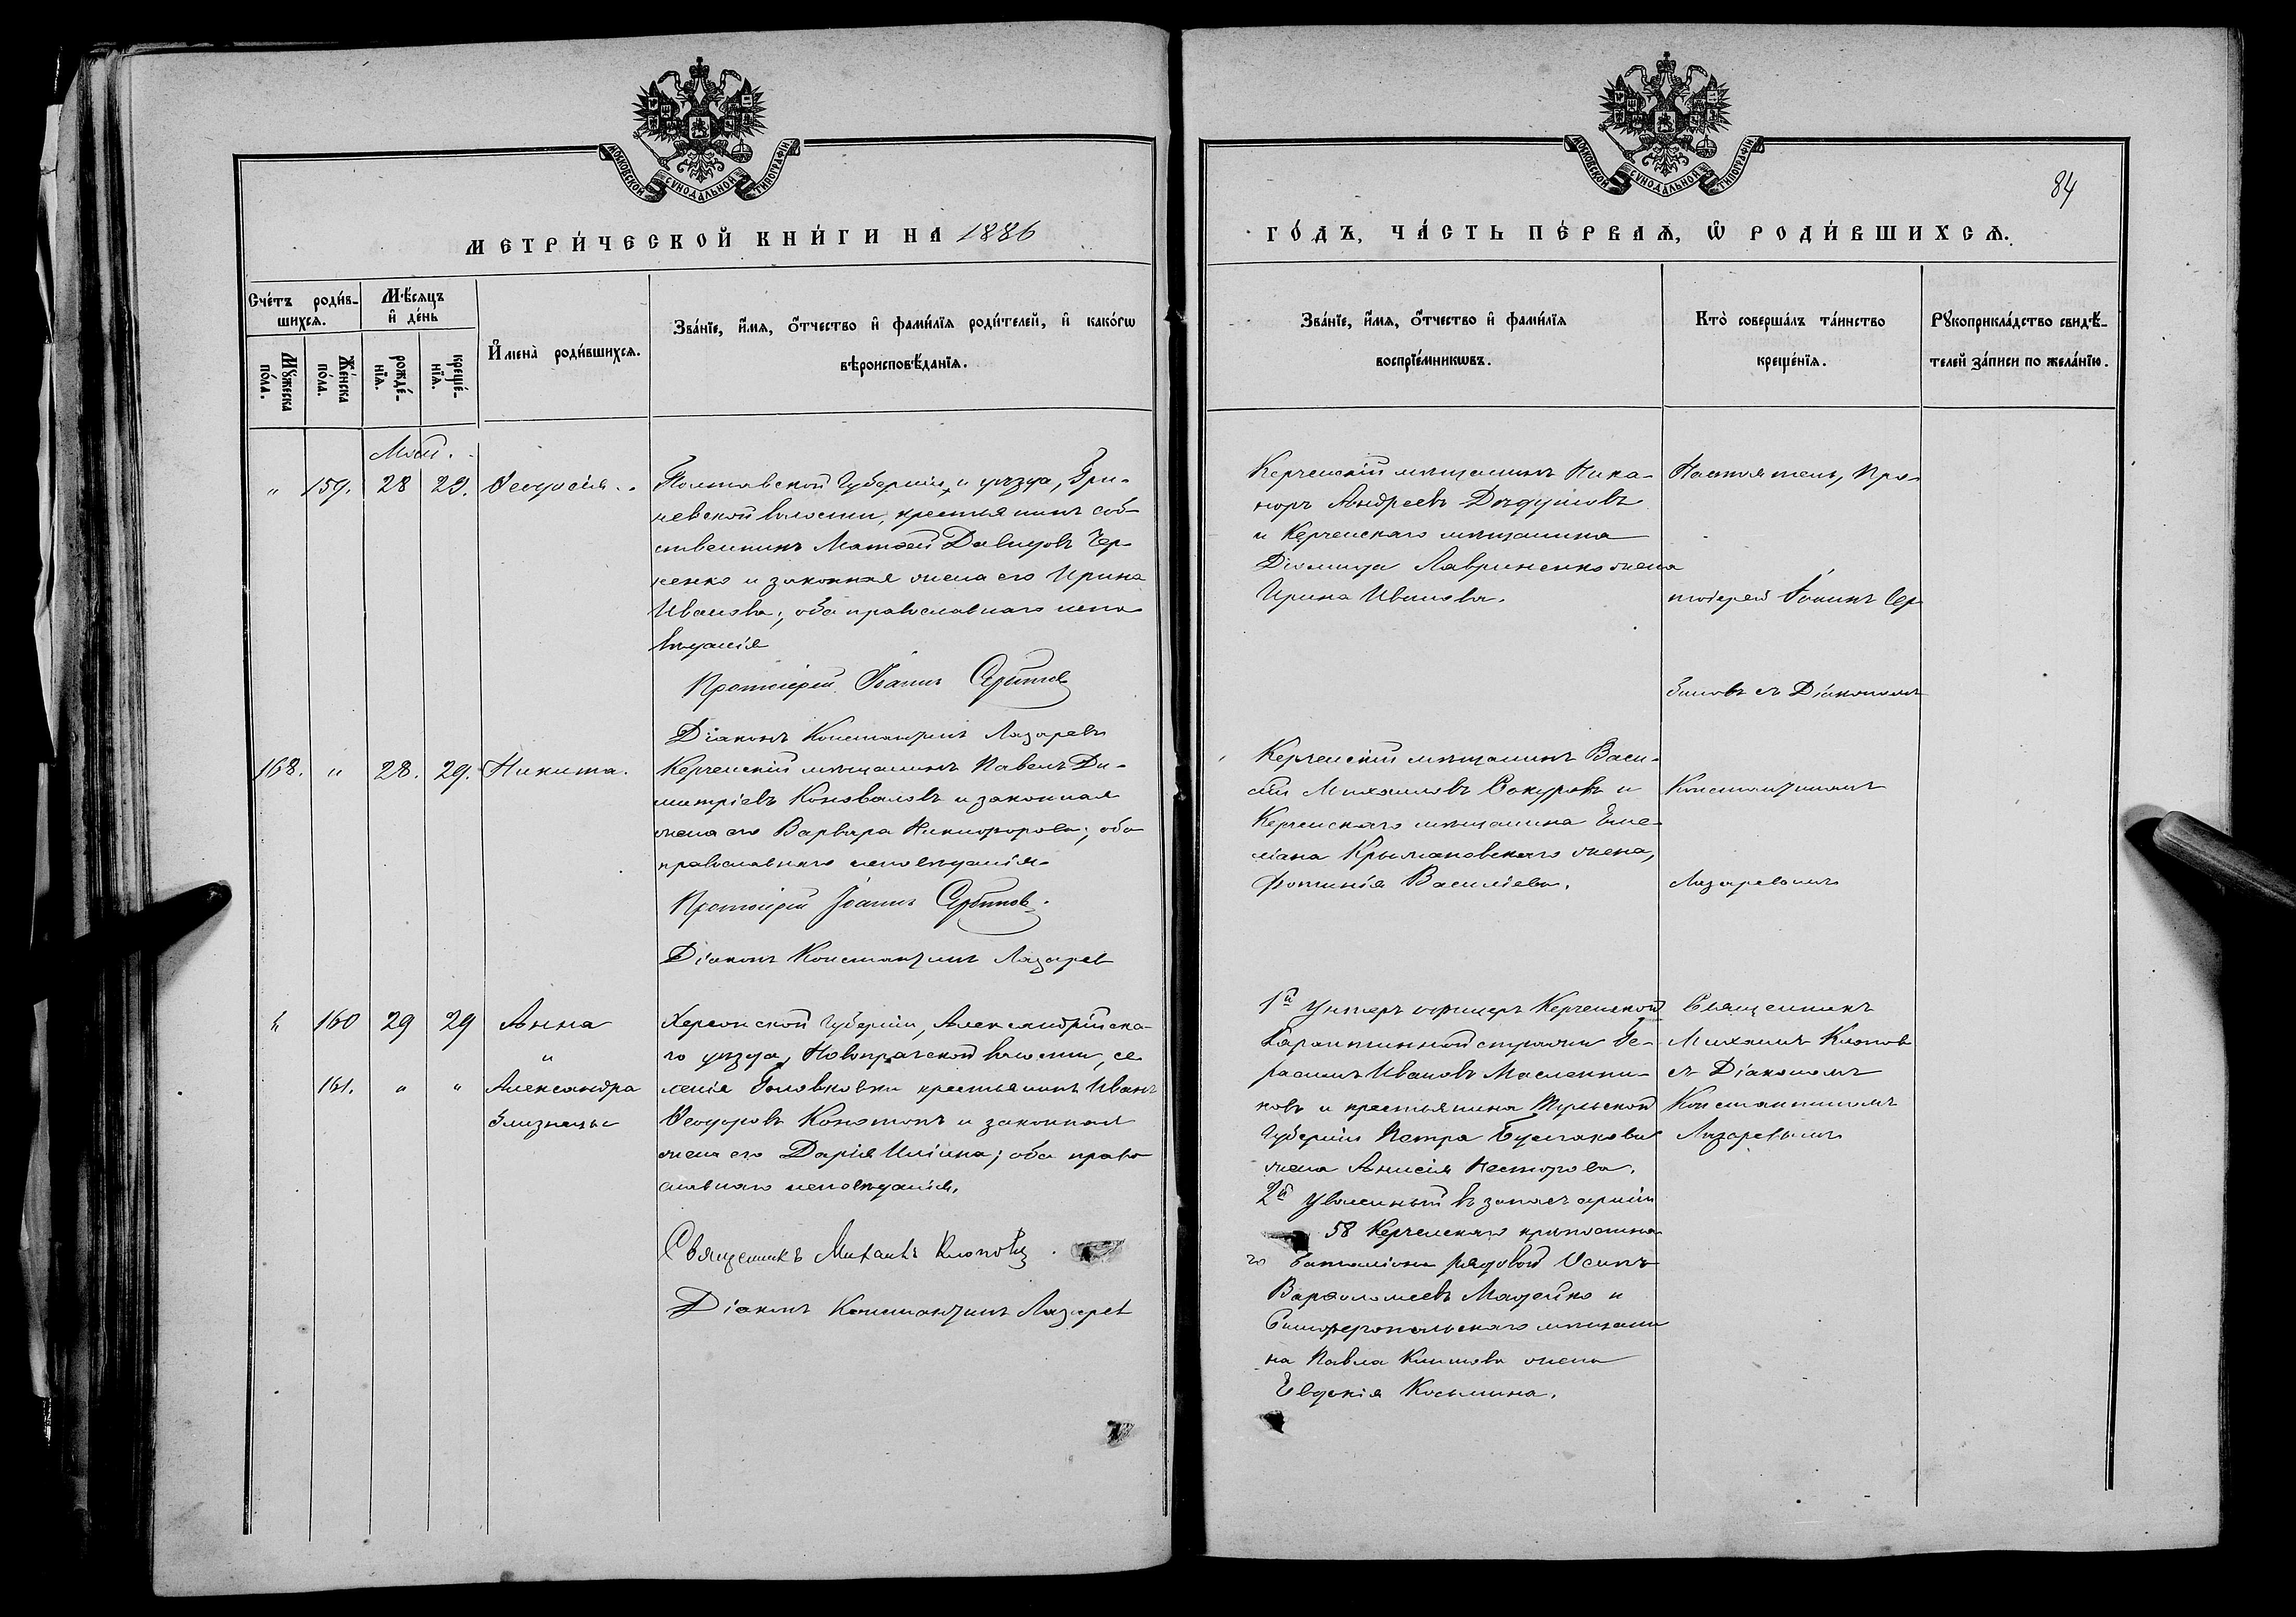 МОСКОВСКОЙ СѴНОДАЛЬНОЙ ТИПОГРАФІИ
МЕТРИ́ЧЕСКОЙ КНИ́ГИ НА 1886
Сче́тъ роди́в-
шихсѧ.
Мѣ́сѧцъ
и҆ де́нь
И҆мена̀ роди́вшихсѧ.
Зва́нїе, и҆́мѧ, ѻ҆́тчество и҆ фами́лїѧ роди́телей, и҆ како́гѡ
вѣроисповѣ́данїѧ.
Мꙋ́жеска
по́ла.
Же́нска
по́ла.
рожде́-
нїѧ.
креще́-
нїѧ.
Май.
" 159. 28 29. Ѳеодосія.
Полтавской Губерніи и уѣзда, Гри-
невской волости, крестьянинъ соб-
ственникъ Матѳей Давидовъ Чер-
ненко и законная жена его Ирина
Иванова; оба православнаго испо-
вѣданія
Протоіерей Іоаннъ Сербиновъ
Діаконъ Константинъ Лазаревъ
168. " 28. 29. Никита.
Керченскій мѣщанинъ Павелъ Ди-
митріевъ Коноваловъ и законная
жена его Варвара Никифорова; оба
православнаго исповѣданія.
Протоіерей Іоаннъ Сербиновъ.
Діаконъ Константинъ Лазаревъ
" 160 29 29 Анна
"
161. " " Александра
близнецы
Херсонской Губерніи, Александрійска-
го уѣзда, Новопражской волости, се-
ленія Головковки крестьянинъ Иванъ
Ѳеодоровъ Конотопъ и законная
жена его Дарія Иліина; оба право
славнаго исповѣданія.
Священникъ Михаилъ Клоповъ
Діаконъ Константинъ Лазаревъ
МОСКОВСКОЙ СѴНОДАЛЬНОЙ ТИПОГРАФІИ
84
ГО́ДЪ, ЧА́СТЬ ПЕ́РВАѦ, Ѡ҆ РОДИ́ВШИХСѦ.
Зва́нїе, и҆́мѧ, ѻ҆́тчество и҆ фами́лїѧ
воспрїе́мникѡвъ.
Кто̀ соверша́лъ та́инство
креще́нїѧ.
Рꙋкоприкла́дство свидѣ́-
телей за́писи по жела́нїю.
Керченскій мѣщанинъ Ника-
норъ Андреевъ Дѣдушовъ
и Керченскаго мѣщанина
Діомида Лавриненко жена
Ирина Иванова.
Настоятель, Про-
тоіерей Іоаннъ Сер
биновъ съ Діакономъ
Константиномъ
Лазаревымъ
Керченскій мѣщанинъ Васи-
лій Михаиловъ Сокуровъ и
Керченскаго мѣщанина Еме-
ліана Крымановскаго жена,
Фотинія Василіева.
1й Унтеръ офицеръ Керченской
Карантинной стражи Ге-
расимъ Ивановъ Масленни-
ковъ и крестьянина Тульской
Губерніи Петра Булгакова
жена Анисія Несторова.
2й Уволенный въ запасъ арміи
58 Керченскаго крѣпостна
го баталіона рядовой Осипъ
Варѳоломеевъ Мацейко и
Симферопольскаго мѣщани
на Павла Климова жена
Евдокія Косьмина.
Священникъ
Михаилъ Клопов
съ Діакономъ
Константиномъ
Лазаревымъ